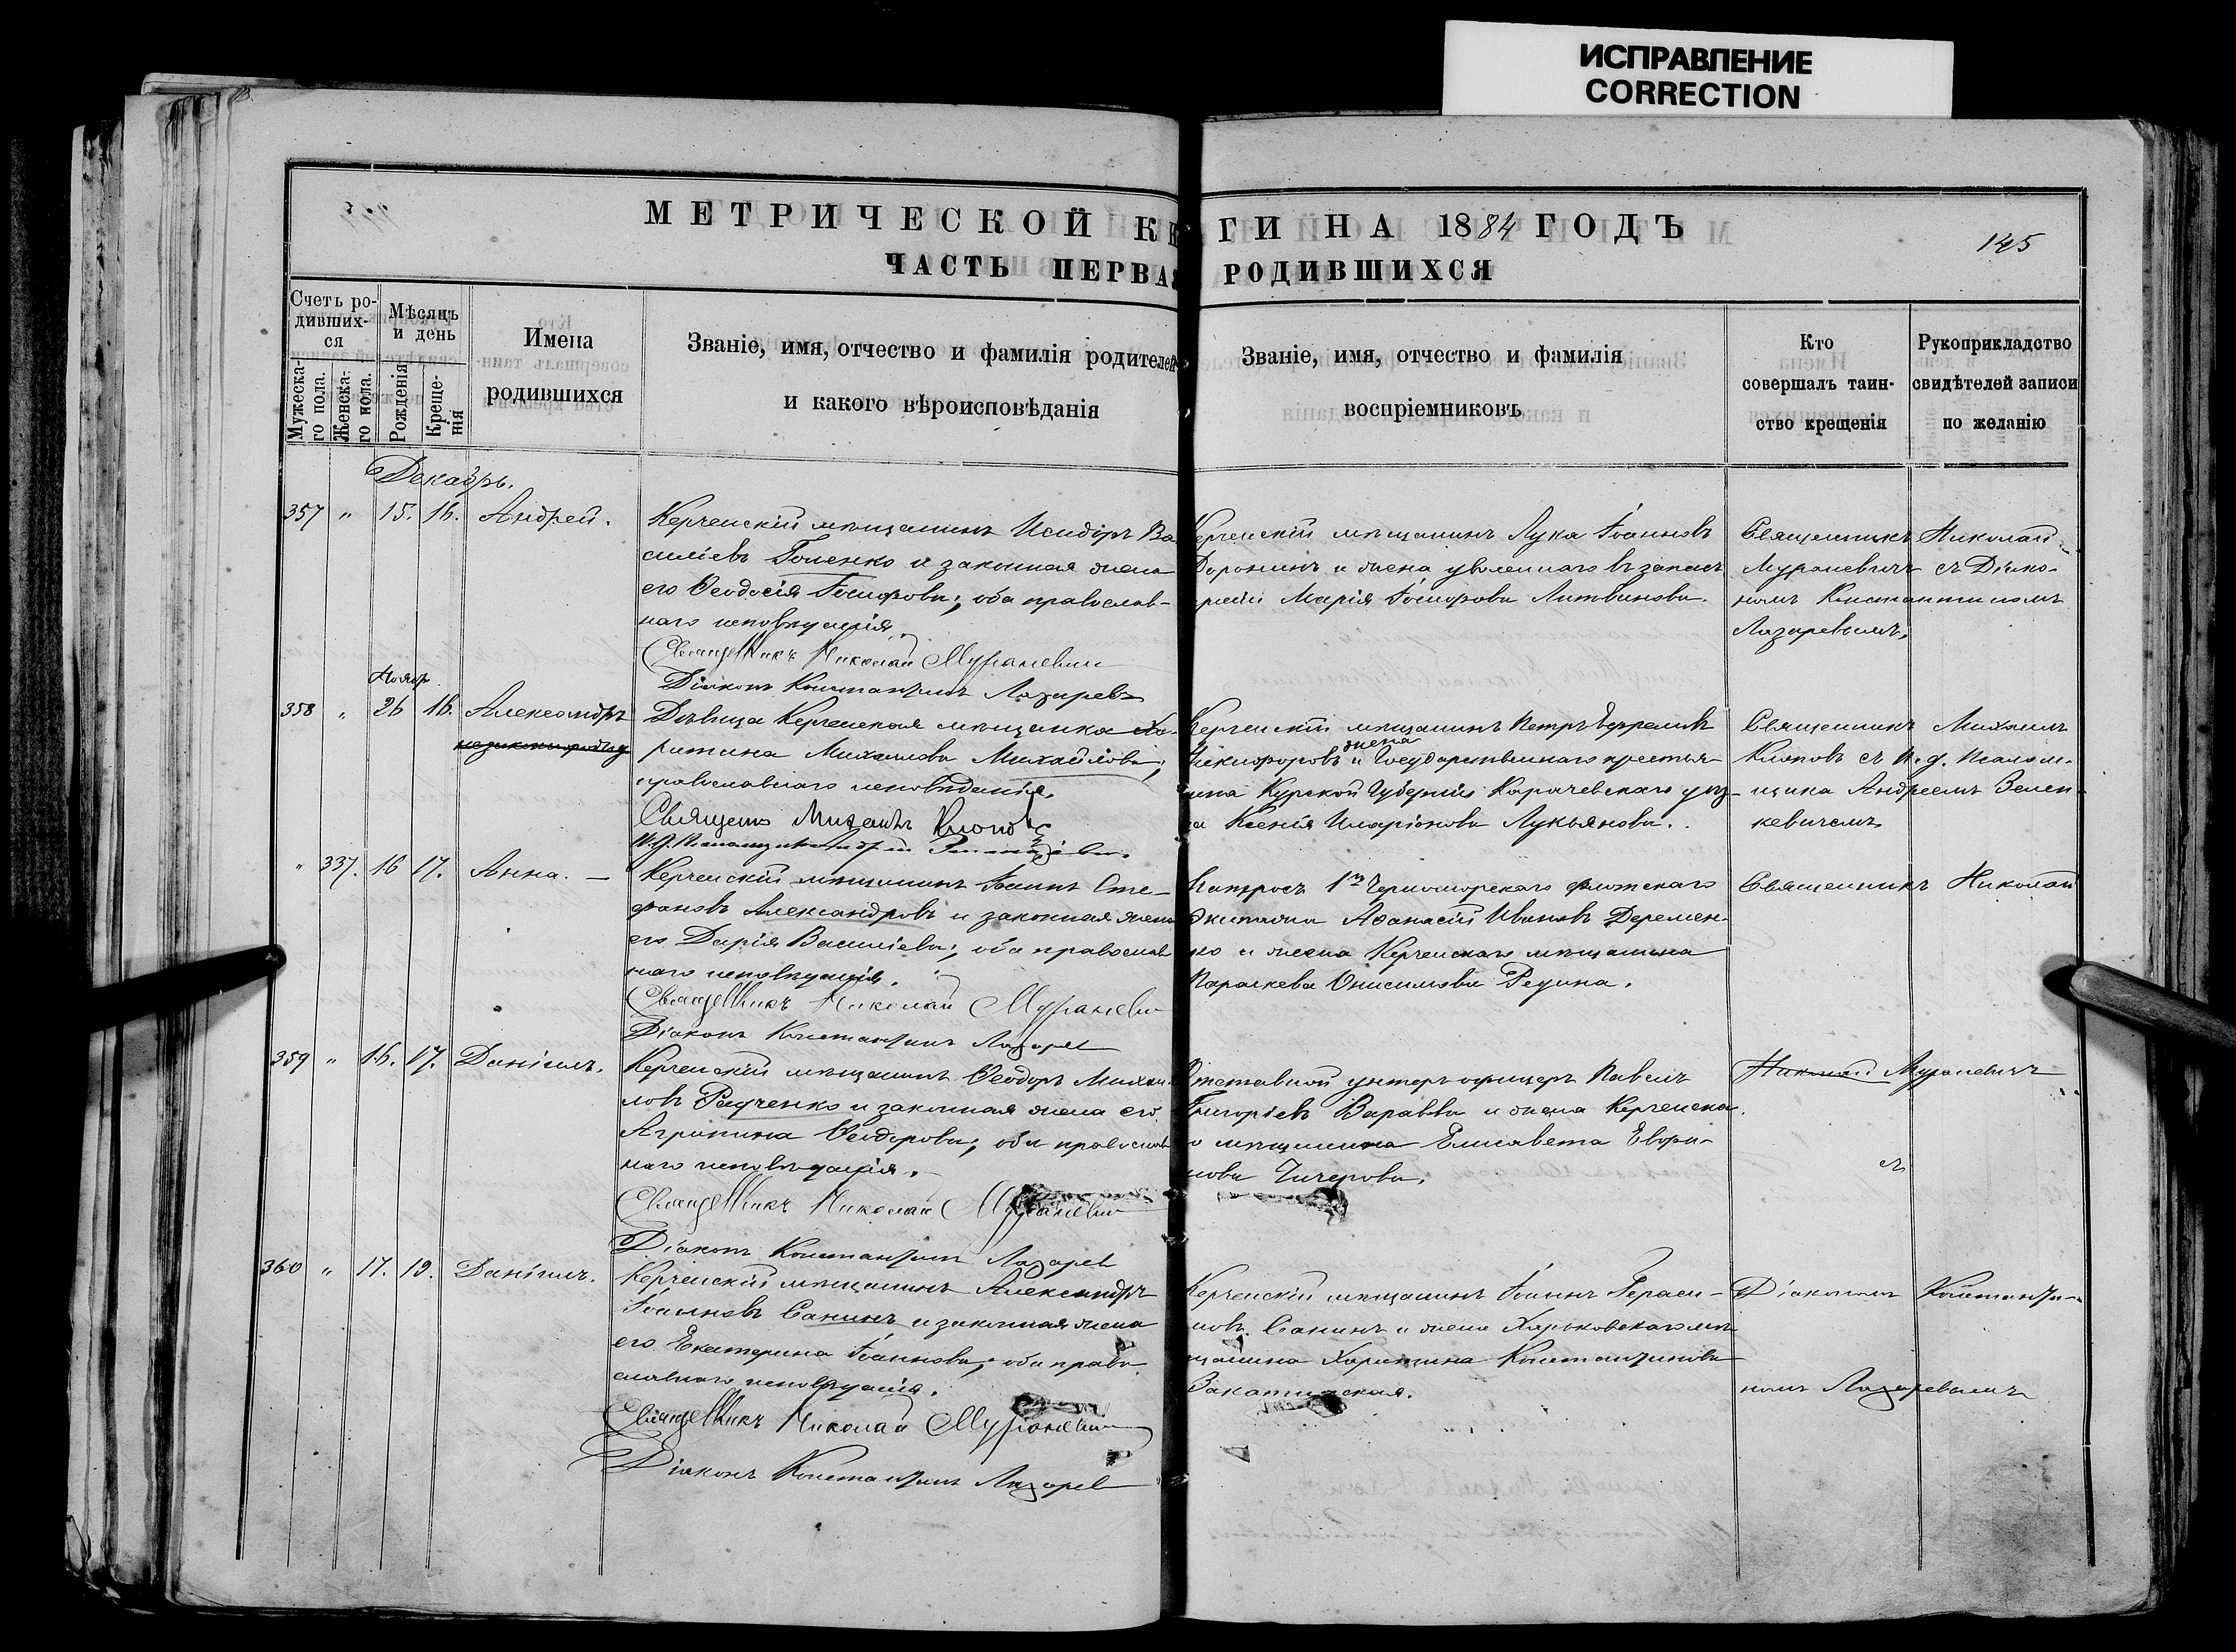 ИСПРАВЛЕНИЕ
CORRECTION
МЕТРИЧЕСКОЙ КН ГИ НА 1884 ГОДЪ
145
ЧАСТЬ ПЕРВАЯ РОДИВШИХСЯ
Счетъ ро-
дивших-
ся
Мужеска-
го пола.
Женска-
го пола.
Мѣсяцъ
и день
Рожденія
Креще-
нія
Имена
родившихся
Званіе, имя, отчество и фамилія родителей
и какого вѣроисповѣданія
Званіе, имя, отчество и фамилія
воспріемниковъ
Кто
совершалъ таин-
ство крещенія
Рукоприкладство
свидѣтелей записи
по желанію
Декабрь.
357 " 15. 16. Андрей.
Керченскій мѣщанинъ Исидоръ Ва-
силіевъ Голенко и законная жена
его Ѳеодосія; оба православ-
наго исповѣданія.
Священникъ Николай Мураневич
Діаконъ Константинъ Лазаревъ
Керченскій мѣщанинъ Лука Іоанновъ
Доронинъ и жена уволеннаго въ запасъ
арміи Марія Литвинова.
Священникъ Николай
Мураневичъ съ Діако-
номъ Константиномъ
Лазаревымъ.
Ноябр.
358 " 26 16. Александръ
незаконнорожд
Дѣвица Керченская мѣщанка Ха-
ритина Михаилова Михайлова;
православнаго исповѣданія.
Священ Михаилъ Клоповъ
И.д. Псаломщика Андрей
Керченскій мѣщанинъ Петръ Ефремовъ
Никифоровъ и жена Государственнаго крестья-
нина Курской Губерніи Карачевскаго уѣз-
да Ксенія Иларіонова Лукьянова.
Священникъ Михаилъ
Клоповъ съ и. д. Псалом-
щика Андреемъ Зелен-
кевичемъ
" 337. 16 17. Анна. —
Керченскій мѣщанинъ Іоаннъ Сте-
фановъ Александровъ и законная жена
его Дарія Василіева; оба православ-
наго исповѣданія.
Священникъ Николай Мураневич
Діаконъ Константинъ Лазарев
Матросъ 1го Черноморскаго флотскаго
Экипажа Аѳанасій Ивановъ Деремен-
ко и жена Керченскаго мѣщанина
Параскева Онисимова Редина.
Священникъ Николай
359 " 16. 17. Даніилъ.
Керченскій мѣщанинъ Ѳеодоръ Михаи-
ловъ Радченко и законная жена его
Агрипина Ѳеодорова; оба православ-
наго исповѣданія.
Священникъ Николай Мураневич
Діаконъ Константинъ Лазарев
Отставной унтеръ офицеръ Павелъ
Григоріевъ Варавва и жена Керченска-
го мѣщанина Елисавета
нова Чичерова.
Николай Мураневичъ
съ
360 " 17. 19. Даніилъ.
Керченскій мѣщанинъ Александръ
Іоанновъ Санинъ и законная жена
его Екатерина Іоаннова; оба право-
славнаго исповѣданія.
Священникъ Николай Мураневич
Діаконъ Константинъ Лазарев
Керченскій мѣщанинъ Іоаннъ Гераси-
мовъ Санинъ и жена Харьковскаго мѣ-
щанина Харитина Константинова
Діакономъ Константи-
номъ Лазаревымъ